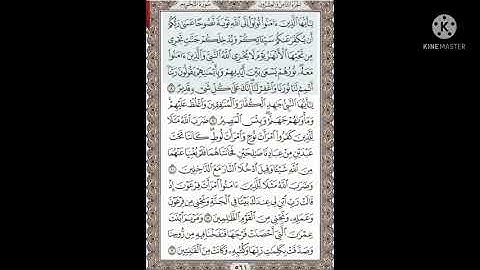 سورة التحريم
الجزء الثامن والعشرون
يَٰٓأَيُّهَا ٱلَّذِينَ ءَامَنُوا۟ تُوبُوٓا۟ إِلَى ٱللَّهِ تَوْبَةً نَّصُوحًا عَسَىٰ رَبُّكُمْ
أَن يُكَفِّرَ عَنكُمْ سَيِّـَٔاتِكُمْ وَيُدْخِلَكُمْ جَنَّٰتٍ تَجْرِى
مِن تَحْتِهَا ٱلْأَنْهَٰرُ يَوْمَ لَا يُخْزِى ٱللَّهُ ٱلنَّبِىَّ وَٱلَّذِينَ ءَامَنُوا۟
مَعَهُۥ نُورُهُمْ يَسْعَىٰ بَيْنَ أَيْدِيهِمْ وَبِأَيْمَٰنِهِمْ يَقُولُونَ رَبَّنَآ
أَتْمِمْ لَنَا نُورَنَا وَٱغْفِرْ لَنَآ إِنَّكَ عَلَىٰ كُلِّ شَىْءٍ قَدِيرٌ ٨
يَٰٓأَيُّهَا ٱلنَّبِىُّ جَٰهِدِ ٱلْكُفَّارَ وَٱلْمُنَٰفِقِينَ وَٱغْلُظْ عَلَيْهِمْ
وَمَأْوَىٰهُمْ جَهَنَّمُ وَبِئْسَ ٱلْمَصِيرُ ٩ ضَرَبَ ٱللَّهُ مَثَلًا
لِّلَّذِينَ كَفَرُوا۟ ٱمْرَأَتَ نُوحٍ وَٱمْرَأَتَ لُوطٍ كَانَتَا تَحْتَ
عَبْدَيْنِ مِنْ عِبَادِنَا صَٰلِحَيْنِ فَخَانَتَاهُمَا فَلَمْ يُغْنِيَا عَنْهُمَا
مِنَ ٱللَّهِ شَيْـًٔا وَقِيلَ ٱدْخُلَا ٱلنَّارَ مَعَ ٱلدَّٰخِلِينَ ١٠
وَضَرَبَ ٱللَّهُ مَثَلًا لِّلَّذِينَ ءَامَنُوا۟ ٱمْرَأَتَ فِرْعَوْنَ إِذْ
قَالَتْ رَبِّ ٱبْنِ لِى عِندَكَ بَيْتًا فِى ٱلْجَنَّةِ وَنَجِّنِى مِن فِرْعَوْنَ
وَعَمَلِهِۦ وَنَجِّنِى مِنَ ٱلْقَوْمِ ٱلظَّٰلِمِينَ ١١ وَمَرْيَمَ ٱبْنَتَ
عِمْرَٰنَ ٱلَّتِىٓ أَحْصَنَتْ فَرْجَهَا فَنَفَخْنَا فِيهِ مِن رُّوحِنَا
وَصَدَّقَتْ بِكَلِمَٰتِ رَبِّهَا وَكُتُبِهِۦ وَكَانَتْ مِنَ ٱلْقَٰنِتِينَ ١٢
٥٦١
KINEMASTER